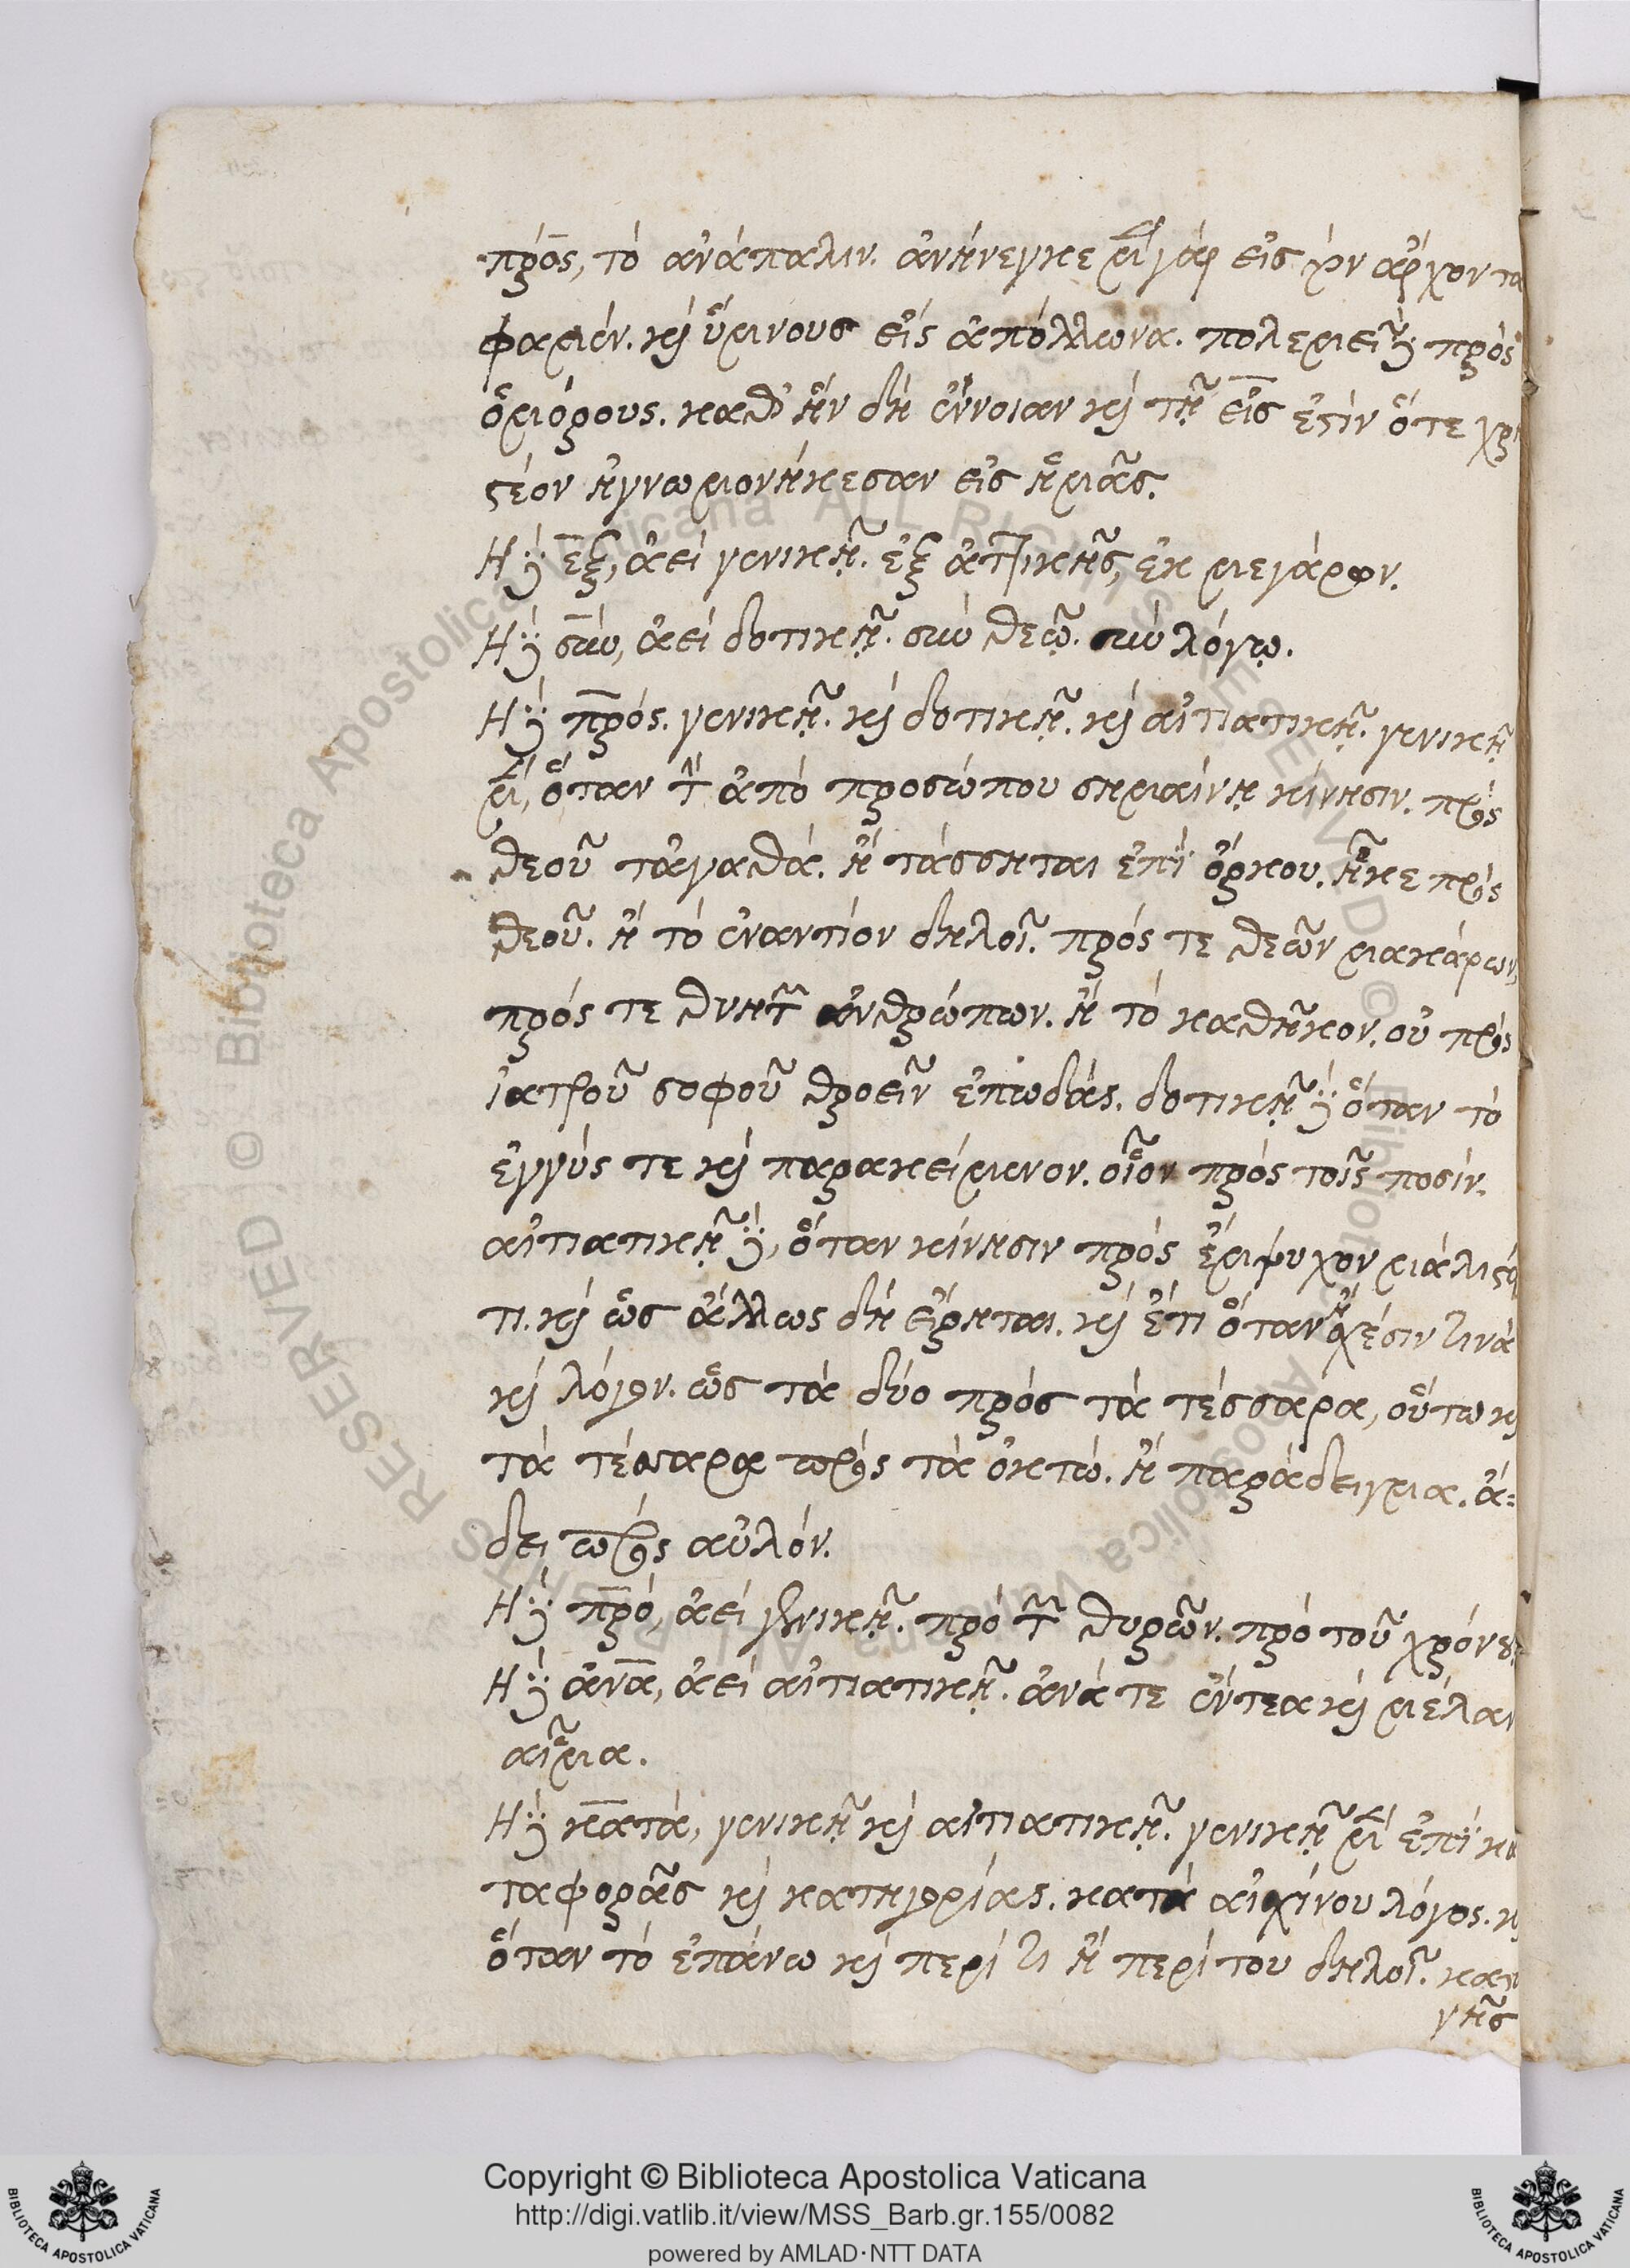 πρός, τὸ ἀνάπαλιν. ἀνήνεγκε μὲν γὰρ εἰς τὸν ἄρχοντα
φαμέν. καὶ ὕμνους εἰς ἀπόλλωνα. πολεμεῖν δὲ πρὸς
ὁμόρους. καθ' ἣν δὴ ἔννοιαν καὶ τῇ εἰς ἐστὶν ὅτε χρη
στέον ἠγνωμονήκεσαν εἰς ἡμᾶς.
Ἡ δὲ ἐξ, ἀεὶ γενικῇ. ἐξ ἀττικῆς, ἐκ μεγάρων.
Ἡ δὲ σὺν, ἀεὶ δοτικῇ. σὺν θεῷ. σὺν λόγῳ.
Ἡ δὲ πρός. γενικῇ. καὶ δοτικῇ. καὶ αἰτιατικῇ. γενικῇ
μὲν, ὅταν τὴν ἀπὸ προσώπου σημαίνῃ κίνησιν. πρὸς
θεοῦ τἀγαθά. ἢ τάσσηται ἐπὶ ὅρκου. ἧκε πρὸς
θεοῦ. ἢ τὸ ἐναντίον δηλοῖ. πρός τε θεῶν μακάρων,
πρός τε θνητῶν ἀνθρώπων. ἢ τὸ καθῆκον. οὐ πρὸς
ἰατροῦ σοφοῦ θροεῖν ἐπωδάς. δοτικῇ δὲ ὅταν τὸ
ἐγγύς τε καὶ παρακείμενον. οἷον πρὸς τοῖς ποσίν.
αἰτιατικῇ δὲ, ὅταν κίνησιν πρὸς ἔμψυχον μάλιστά
τι. καὶ ὡς ἄλλως δὴ εἴρηται. καὶ ἔτι ὅταν ᾖ σχέσιν τινὰ
καὶ λόγον. ὡς τὰ δύο πρὸς τὰ τέσσαρα, οὕτω καὶ
τὰ τέσσαρα πρὸς τὰ ὀκτώ. ἢ παράδειγμα. ἄ-
δει πρὸς αὐλόν.
Ἡ δὲ πρό, ἀεὶ γενικῇ. πρὸ τῶν θυρῶν. πρὸ τοῦ χρόνου.
Ἡ δὲ ἀνά, ἀεὶ αἰτιατικῇ. ἀνά τε ἔντεα καὶ μέλαν
αἷμα.
Ἡ δὲ κατά, γενικῇ καὶ αἰτιατικῇ. γενικῇ μὲν ἐπὶ κα
ταφορᾶς καὶ κατηγορίας. κατὰ αἰσχίνου λόγος. καὶ
ὅταν τὸ ἐπάνω καὶ περί τι ἢ περί του δηλοῖ. κατὰ
γῆς
Copyright © Biblioteca Apostolica Vaticana
http://digi.vatlib.it/view/MSS_Barb.gr.155/0082
powered by AMLAD·NTT DATA